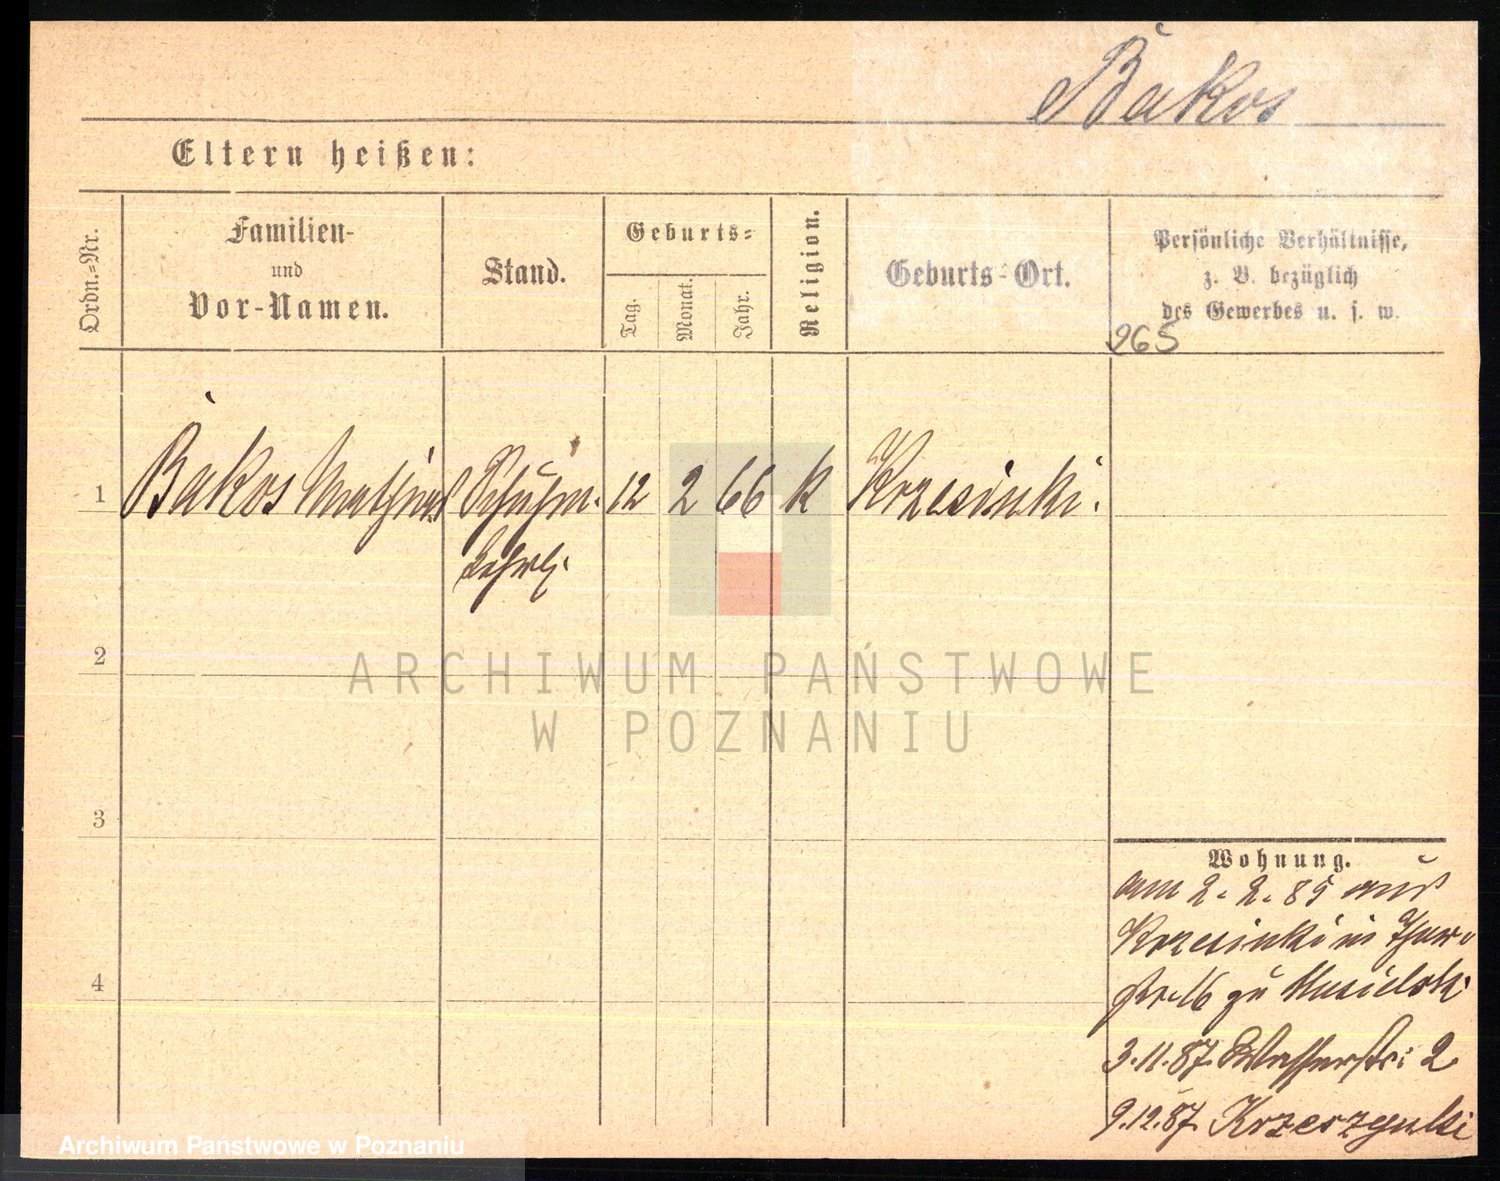 Bakos
Eltern heißen:
Ordn.=Nr.
Familien-
und
Vor-Namen.
Stand.
Geburts=
Tag.
Monat.
Jahr.
Religion.
Geburts-Ort.
Persönliche Verhältnisse,
z. B. bezüglich
des Gewerbes u. s. w.
265
1 Bakos Mathias Schuhm. 12 2 66 k Krzesinki.
Lehrl.
2
3
4
Wohnung.
am 2. 2. 85 aus
Krzesinki in
16 zu Musielski
3.11.87. Wasserstr: 2
9.12.87.
ARCHIWUM PAŃSTWOWE
W POZNANIU
Archiwum Państwowe w Poznaniu